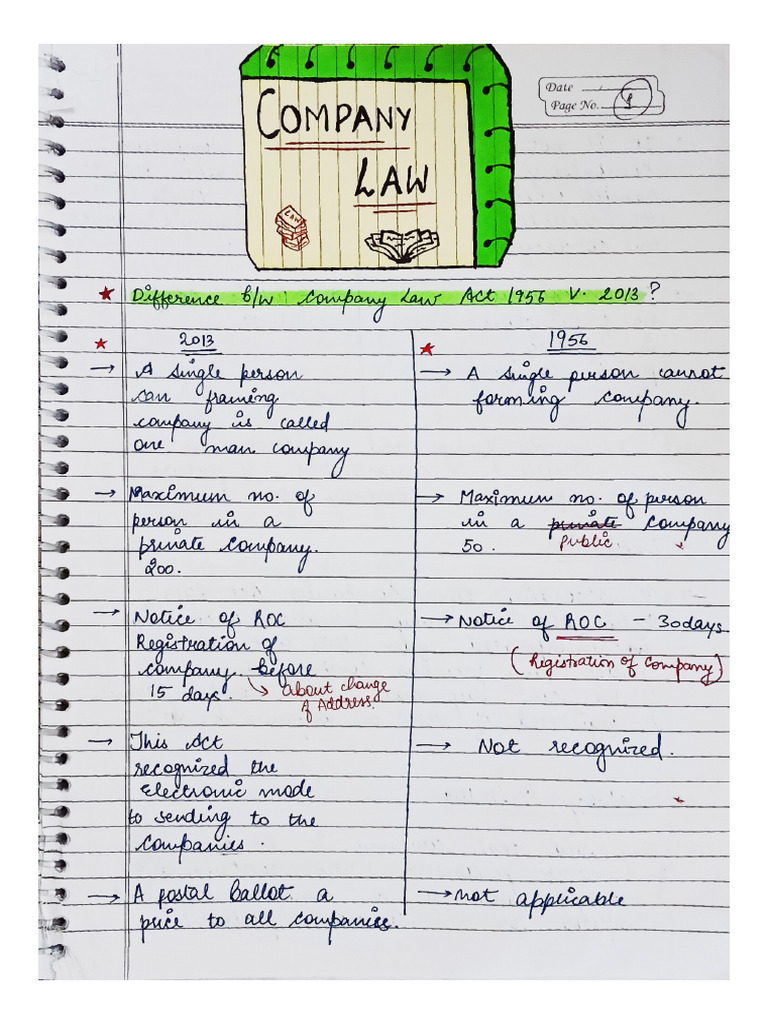 Date
Page No. 1
COMPANY
LAW
LAW
★ Difference b/w Company Law Act 1956 V. 2013?
★ 2013
→ A single person
can framing
company is called
one man company
→ Maximum no. of
person in a
private company.
200.
→ Notice of ROC
Registration of
company before
15 days. ↳ About change
of Address.
→ This Act
recognized the
Electronic mode
to sending to the
companies.
→ A postal ballot a
price to all companies.
★ 1956
→ A single person cannot
forming company.
→ Maximum no. of person
in a private company
50. Public
→ Notice of ROC - 30days
(Registration of Company)
→ Not recognized.
→ not applicable